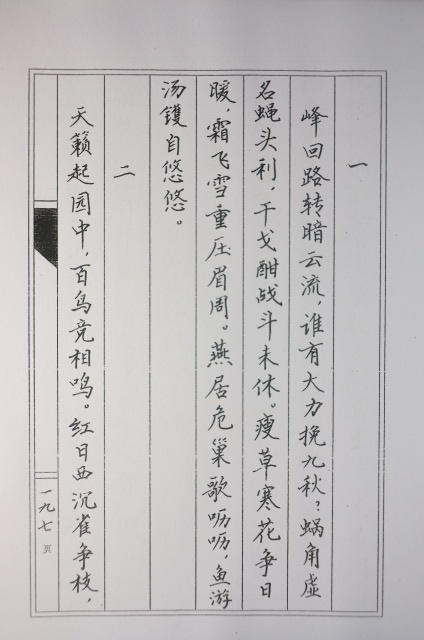 一
峰回路转暗云流，谁有大力挽九秋？蜗角虚
名蝇头利，干戈酣战斗未休。瘦草寒花争日
暖，霜飞雪重压眉周。燕居危巢歌呖呖，鱼游
汤镬自悠悠。
二
天籁起园中，百鸟竞相鸣。红日西沉雀争枝，
一九七页